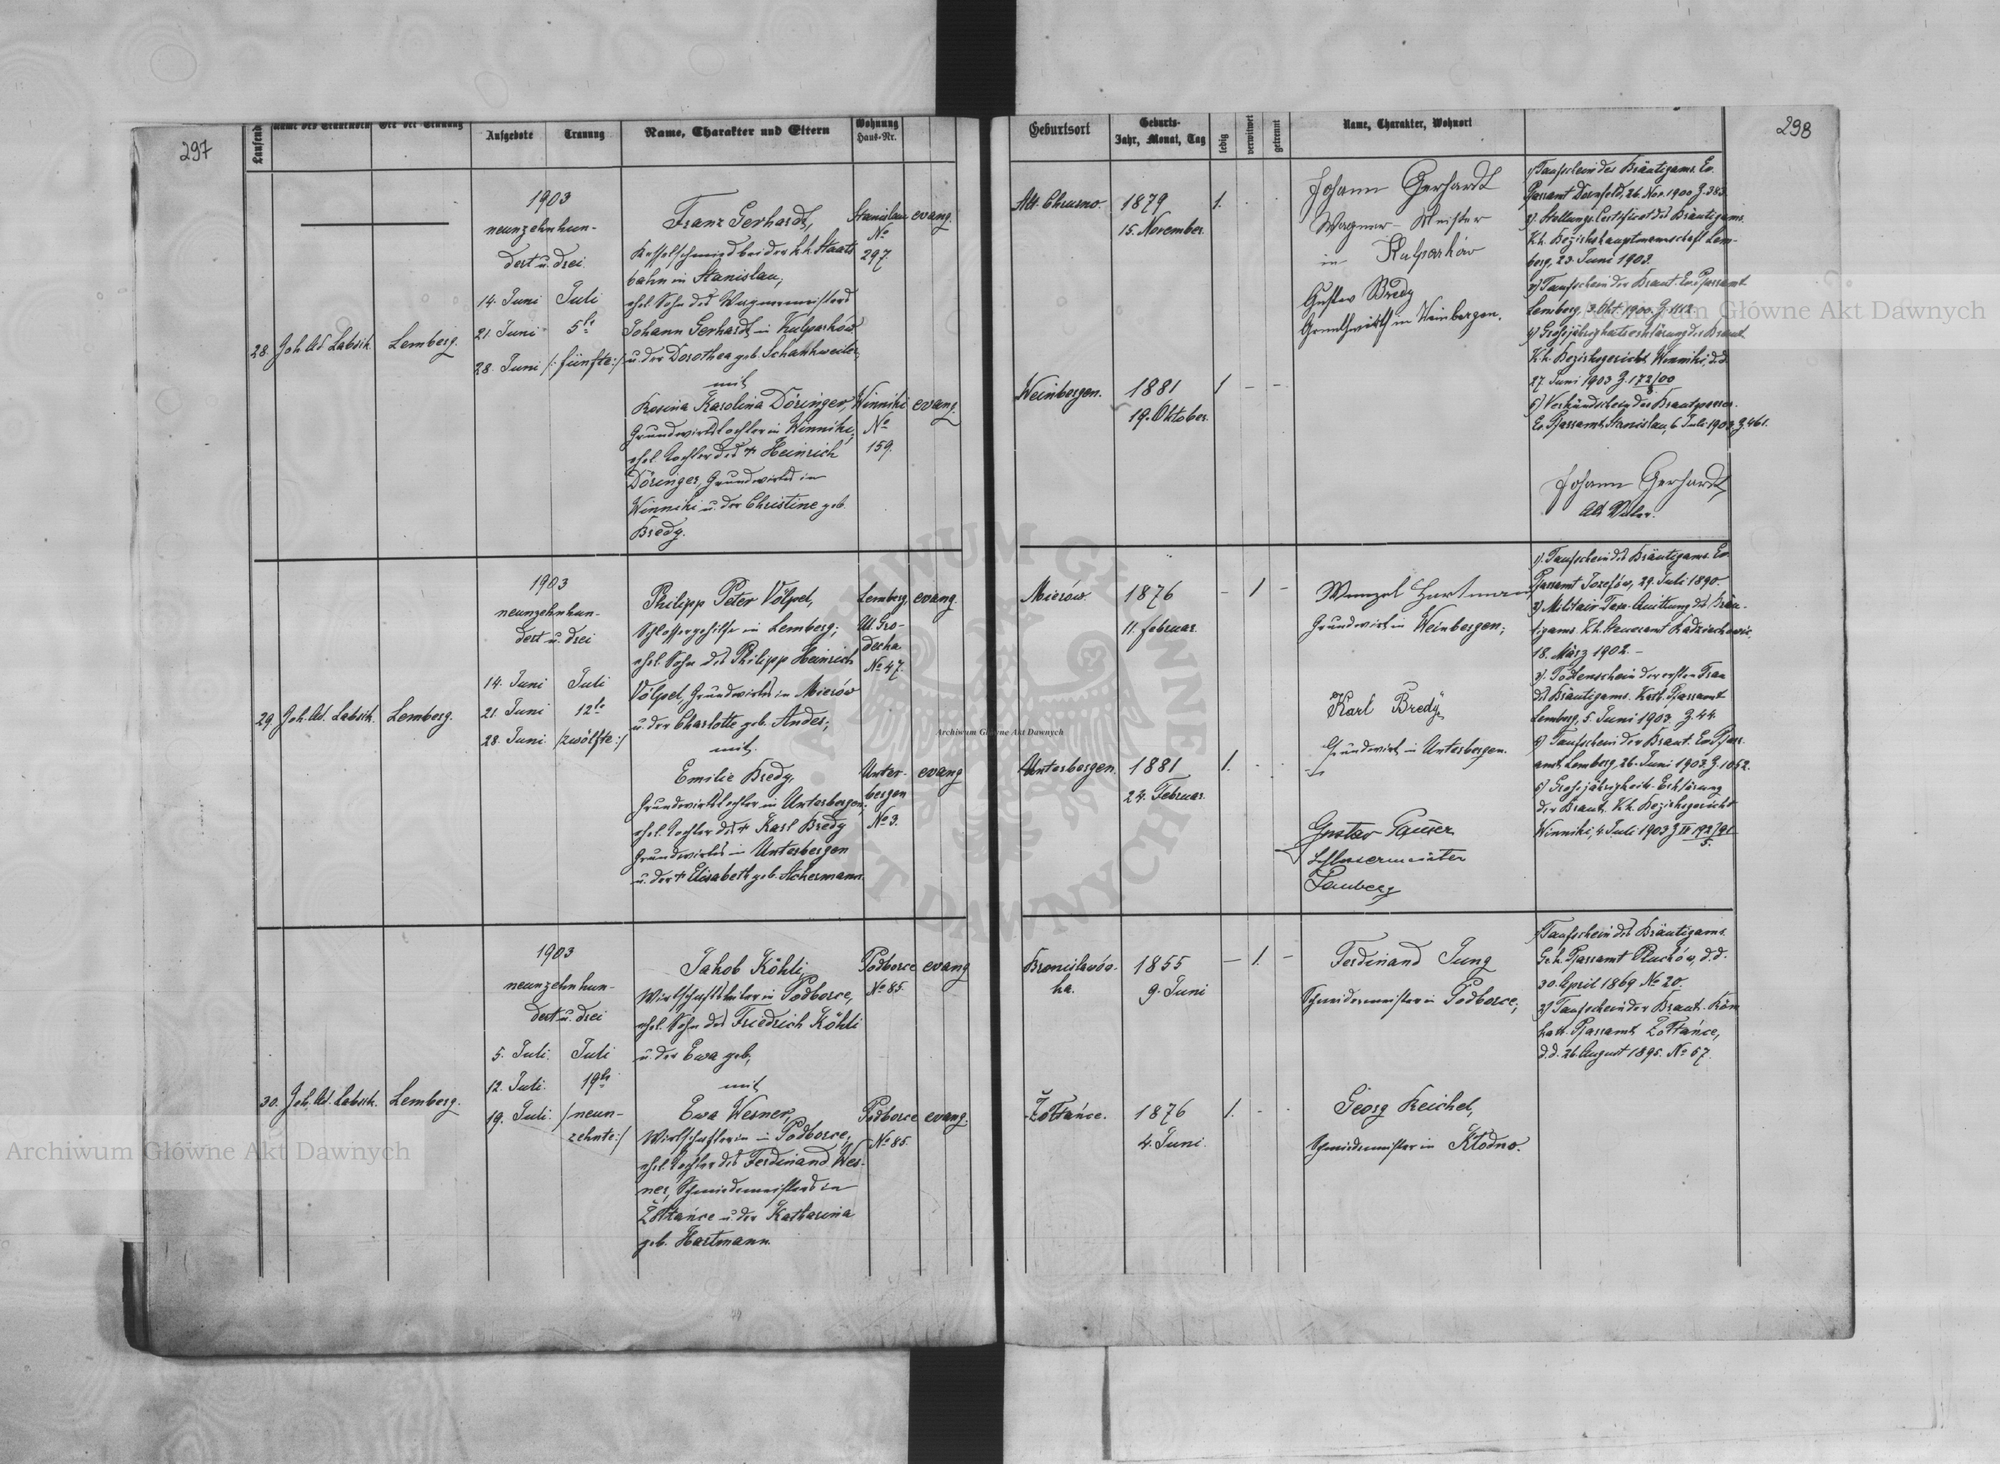 297
Laufende
Name des Trauenden
Ort der Trauung
Aufgebote
Trauung
Name, Charakter und Eltern
Wohnung
Haus-Nr.
28.
Joh. Ad. Labsik.
Lemberg.
1903
neunzehnhun-
dert u. drei
14. Juni
21. Juni
28. Juni
Juli
5te
/: fünfte :/
Franz Gerhardt,
Kesselschmied bei der k.k. Staats
bahn in Stanislau,
ehel. Sohn des Wagnermeisters
Johann Gerhardt in Kulparków
u. der Dorothea geb. Schankweiler,
mit
Rosina Karolina Döringer,
Grundwirtstochter in Winniki,
ehel. Tochter des + Heinrich
Döringer, Grundwirts in
Winniki u. der Christine geb.
Bredy.
Stanislau
No
297.
evang.
Winniki
No
159.
evang.
29.
Joh. Ad. Labsik.
Lemberg.
1903
neunzehnhun-
dert u. drei
14. Juni
21. Juni
28. Juni
Juli
12te
/zwölfte :/
Philipp Peter Völpel,
Schlossergehilfe in Lemberg;
ehel. Sohn des Philipp Heinrich
Völpel, Grundwirts in Mierów
u. der Charlotte geb. Andes;
mit
Emilie Bredy,
Grundwirtstochter in Unterbergen,
ehel. Tochter des + Karl Bredy
Grundwirts in Unterbergen
u. der + Elisabeth geb. Ackermann.
Lemberg,
Ul. Gro-
decka
No 47.
evang.
Unter-
bergen
No 3.
evang
30.
Joh. Ad. Labsik.
Lemberg.
1903
neunzehnhun-
dert u. drei
5. Juli.
12. Juli.
19. Juli.
Juli
19te
/neun-
zehnte :/
Jakob Köhli,
Wirtschafts in Podborce,
ehel. Sohn des Friedrich Köhli
u. der Ewa geb.,
mit
Ewa Werner,
Wirtschafterin in Podborce,
ehel. Tochter des Ferdinand Wer-
ner, Schmiedemeisters in
Żółtańce u. der Katharina
geb. Hartmann.
Podborce
No 85.
evang
Podborce
No 85.
evang.
298
Geburtsort
Geburts-
Jahr, Monat, Tag
ledig
verwitwet
getrennt
Name, Charakter, Wohnort
Alt. Chrusno.
1879
15. November.
1.
Weinbergen.
1881
19. Oktober.
1
Johann Gerhardt
Wagner-Meister
in Kulparków
Gustav Bredy
Grundwirth in Weinbergen.
1) Taufschein des Bräutigams. Ev.
Pfarramt Dornfeld, 26. Nov. 1900 Z. 383.
2). Stellungs-Certificat des Bräutigams.
K.k. Bezirkshauptmannschaft Lem-
berg, 23. Juni 1903.
3) Taufschein der Braut. Ev. Pfarramt
Lemberg, 3. Okt. 1900. Z. 1112.
4) Großjährigkeitserklärung der Braut
K.k. Bezirksgericht Winniki, d.d.
27. Juni 1903 Z. 172/00
5) Verkündschein des Brautpaares.
Ev. Pfarramt Stanislau, 6 Juli 1903. Z. 461.
Johann Gerhardt
als Vater.
Mierów.
1876
11. Februar.
1
Unterbergen.
1881
24. Februar.
1.
Wenzel Hartmann,
Grundwirt in Weinbergen;
Karl Bredy
Grundwirt in Unterbergen.
Gustav
Schlossermeister
Lemberg
1). Taufschein des Bräutigams. Ev.
Pfarramt Josefów, 29. Juli 1890.
2) Militair-Taxe-Quittung des Bräu-
tigams. K.k. Steueramt Radziechowie.
18. März 1902. -
3). Todtenschein der ersten Frau
des Bräutigams. Kath. Pfarramt
Lemberg, 5. Juni 1903. Z. 44.
4) Taufschein der Braut. Ev. Pfarr-
amt Lemberg, 26. Juni 1903. Z. 1052.
5) Großjährigkeits-Erklärung
der Braut. K.k. Bezirksgericht
Winniki, 4. Juli 1903
Bronisławów-
ka.
1855
9. Juni
1.
Żółtańce.
1876
4. Juni.
1.
Ferdinand Jung
Schmiedemeister in Podborce;
Georg Reichel,
Schmiedemeister in Kłodno.
1) Taufschein des Bräutigams.
Pfarramt d.d.
30. April 1869 No 20.
2) Taufschein der Braut. Röm
kath. Pfarramt Żółtańce,
d.d. 26. August 1895. No 57.
Archiwum Główne Akt Dawnych
Archiwum Główne Akt Dawnych
Archiwum Główne Akt Dawnych
ARCHIWUM GŁÓWNE AKT DAWNYCH